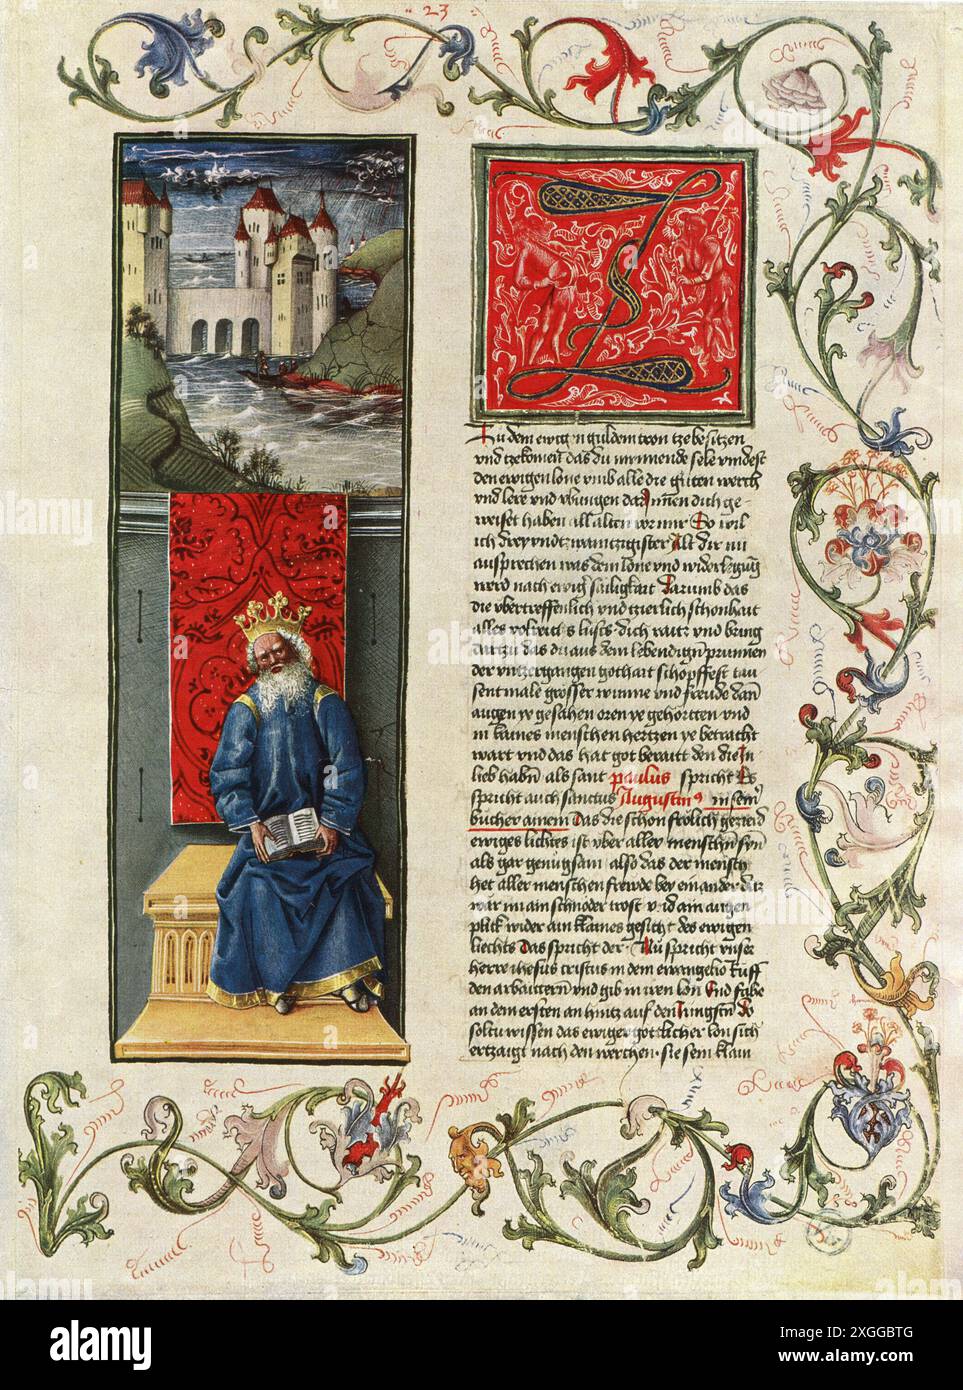 23
Z
Zu dem ewigen guldem tron tze besitzen
vnd tzekomen das du mynnende sele vindest
den ewigen lone vmb alle die guten werch
vnd lere vnd vbungen dar Innen dich ge-
weiset haben all alten vor mir So wil
ich drey vndtzwaintzigister Alt dir nu
aussprechen was dem lone vnd widerlegung
werd nach ewiger säligkait Darumb das
die vbertreffenlich vnd tzierlich schonhait
alles lusts dich raitz vnd bring
dartzu das du aus dem lebendigen prunnen
der vntzergangen gothait schopffest tau
sent male grosser wunne vnd freude dan
augen ye gesehen oren ye gehortten vnd
in kaines menschen hertzen ye betracht
wart vnd das hat got berait den die In
lieb haben als sant paulus spricht Es
spricht auch sanctus Augustinus in sein
bucher ainem Das die schon frölich
ewiges liechtes ist vber aller menschen syn
als gar genugsam also das der mensch
het aller menschen freude bey ein ander daz
wär im ain schnoder trost vnd ain augen
plick wider ain klaines gesicht des ewigen
liechts Das spricht der Nu spricht vnser
herre ihesus cristus in dem ewangelio Ruff
den arbaittern vnd gib in iren lon vnd habe
an dem ersten an hintz auf den Iungsten Do
soltu wissen das ewiger gotlicher lon sich
ertzaigt nach den werchen sie sein klain
alamy
alamy
Image ID: 2XGGBTG
www.alamy.com